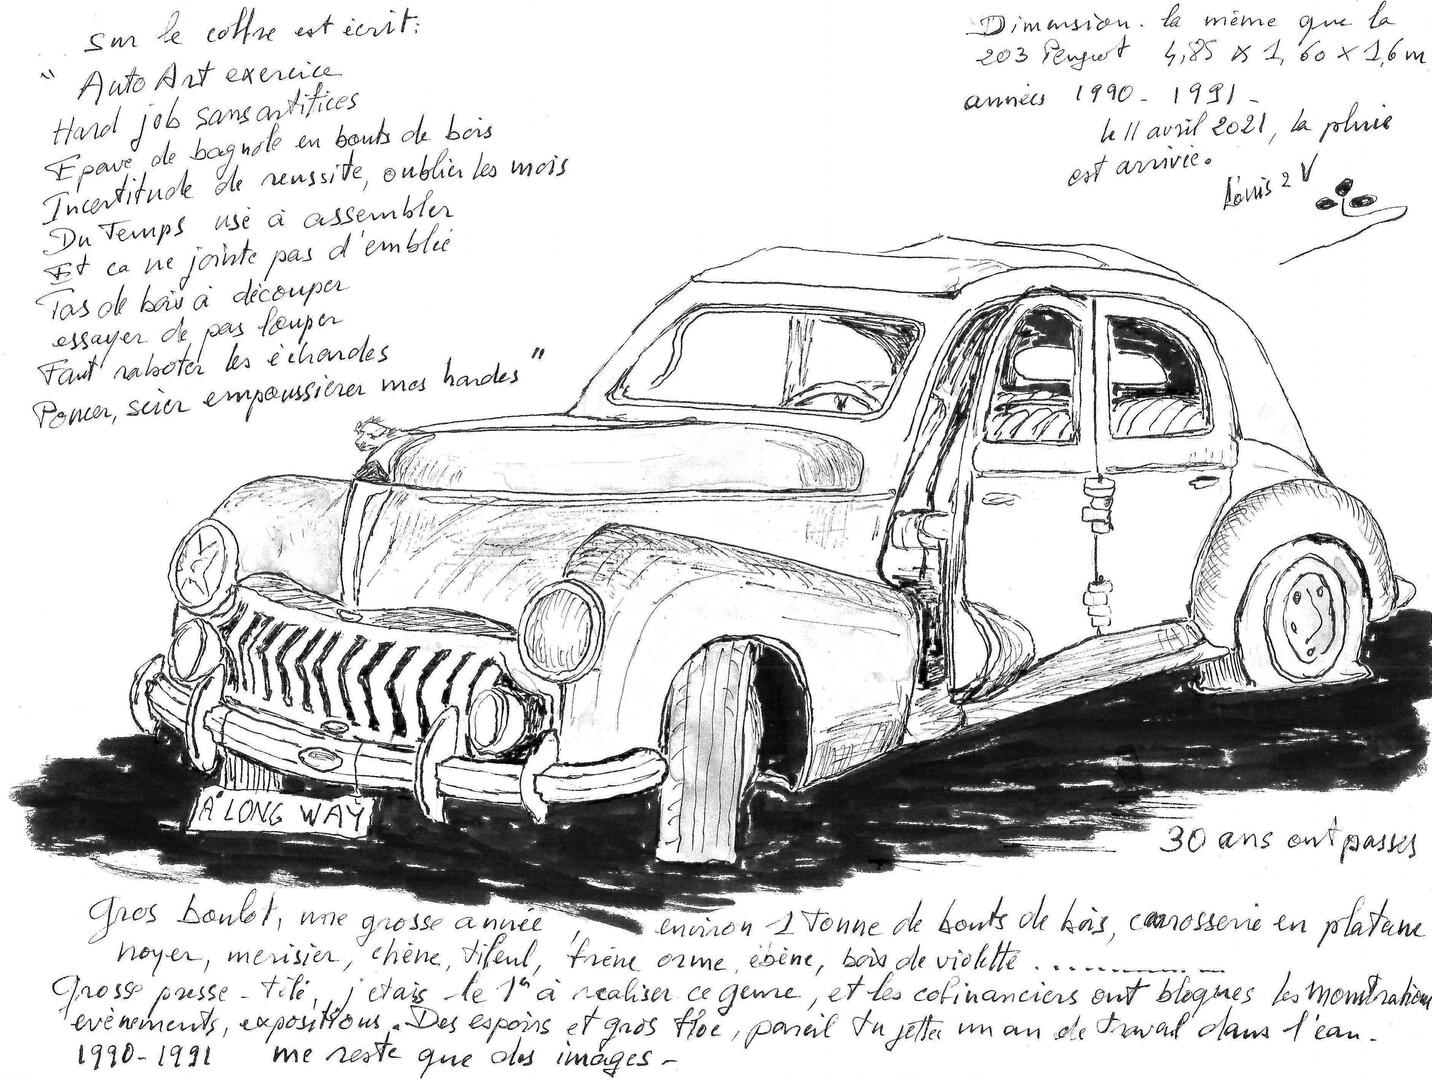 Sur le coffre est écrit:
" Auto Art exercice
Hard job sans artifices
Epave de bagnole en bouts de bois
Incertitude de reussite, oublier les mois
Du Temps usé à assembler
Et ca ne jointe pas d'emblée
Tas de bois à découper
essayer de pas louper
Faut raboter les échardes
Poncer, scier empoussiérer mes hardes "
Dimension. la même que la
203 Peugeot 4,85 x 1,60 x 1,6 m
années 1990 - 1991 -
le 11 avril 2021, la pluie
est arrivée.
Louis 2 V
A LONG WAY
30 ans ont passés
Gros boulot, une grosse année, environ 1 Tonne de bouts de bois, carrosserie en platane
noyer, merisier, chêne, tilleul, frêne orme, ébène, bois de violette ..............
Grosse presse - télé, j'étais le 1er à realiser ce genre, et les cofinanciers ont bloqués les monstrations
evènements, expositions. Des espoirs et gros floc, pareil tu jettes un an de travail dans l'eau.
1990-1991 me reste que des images -